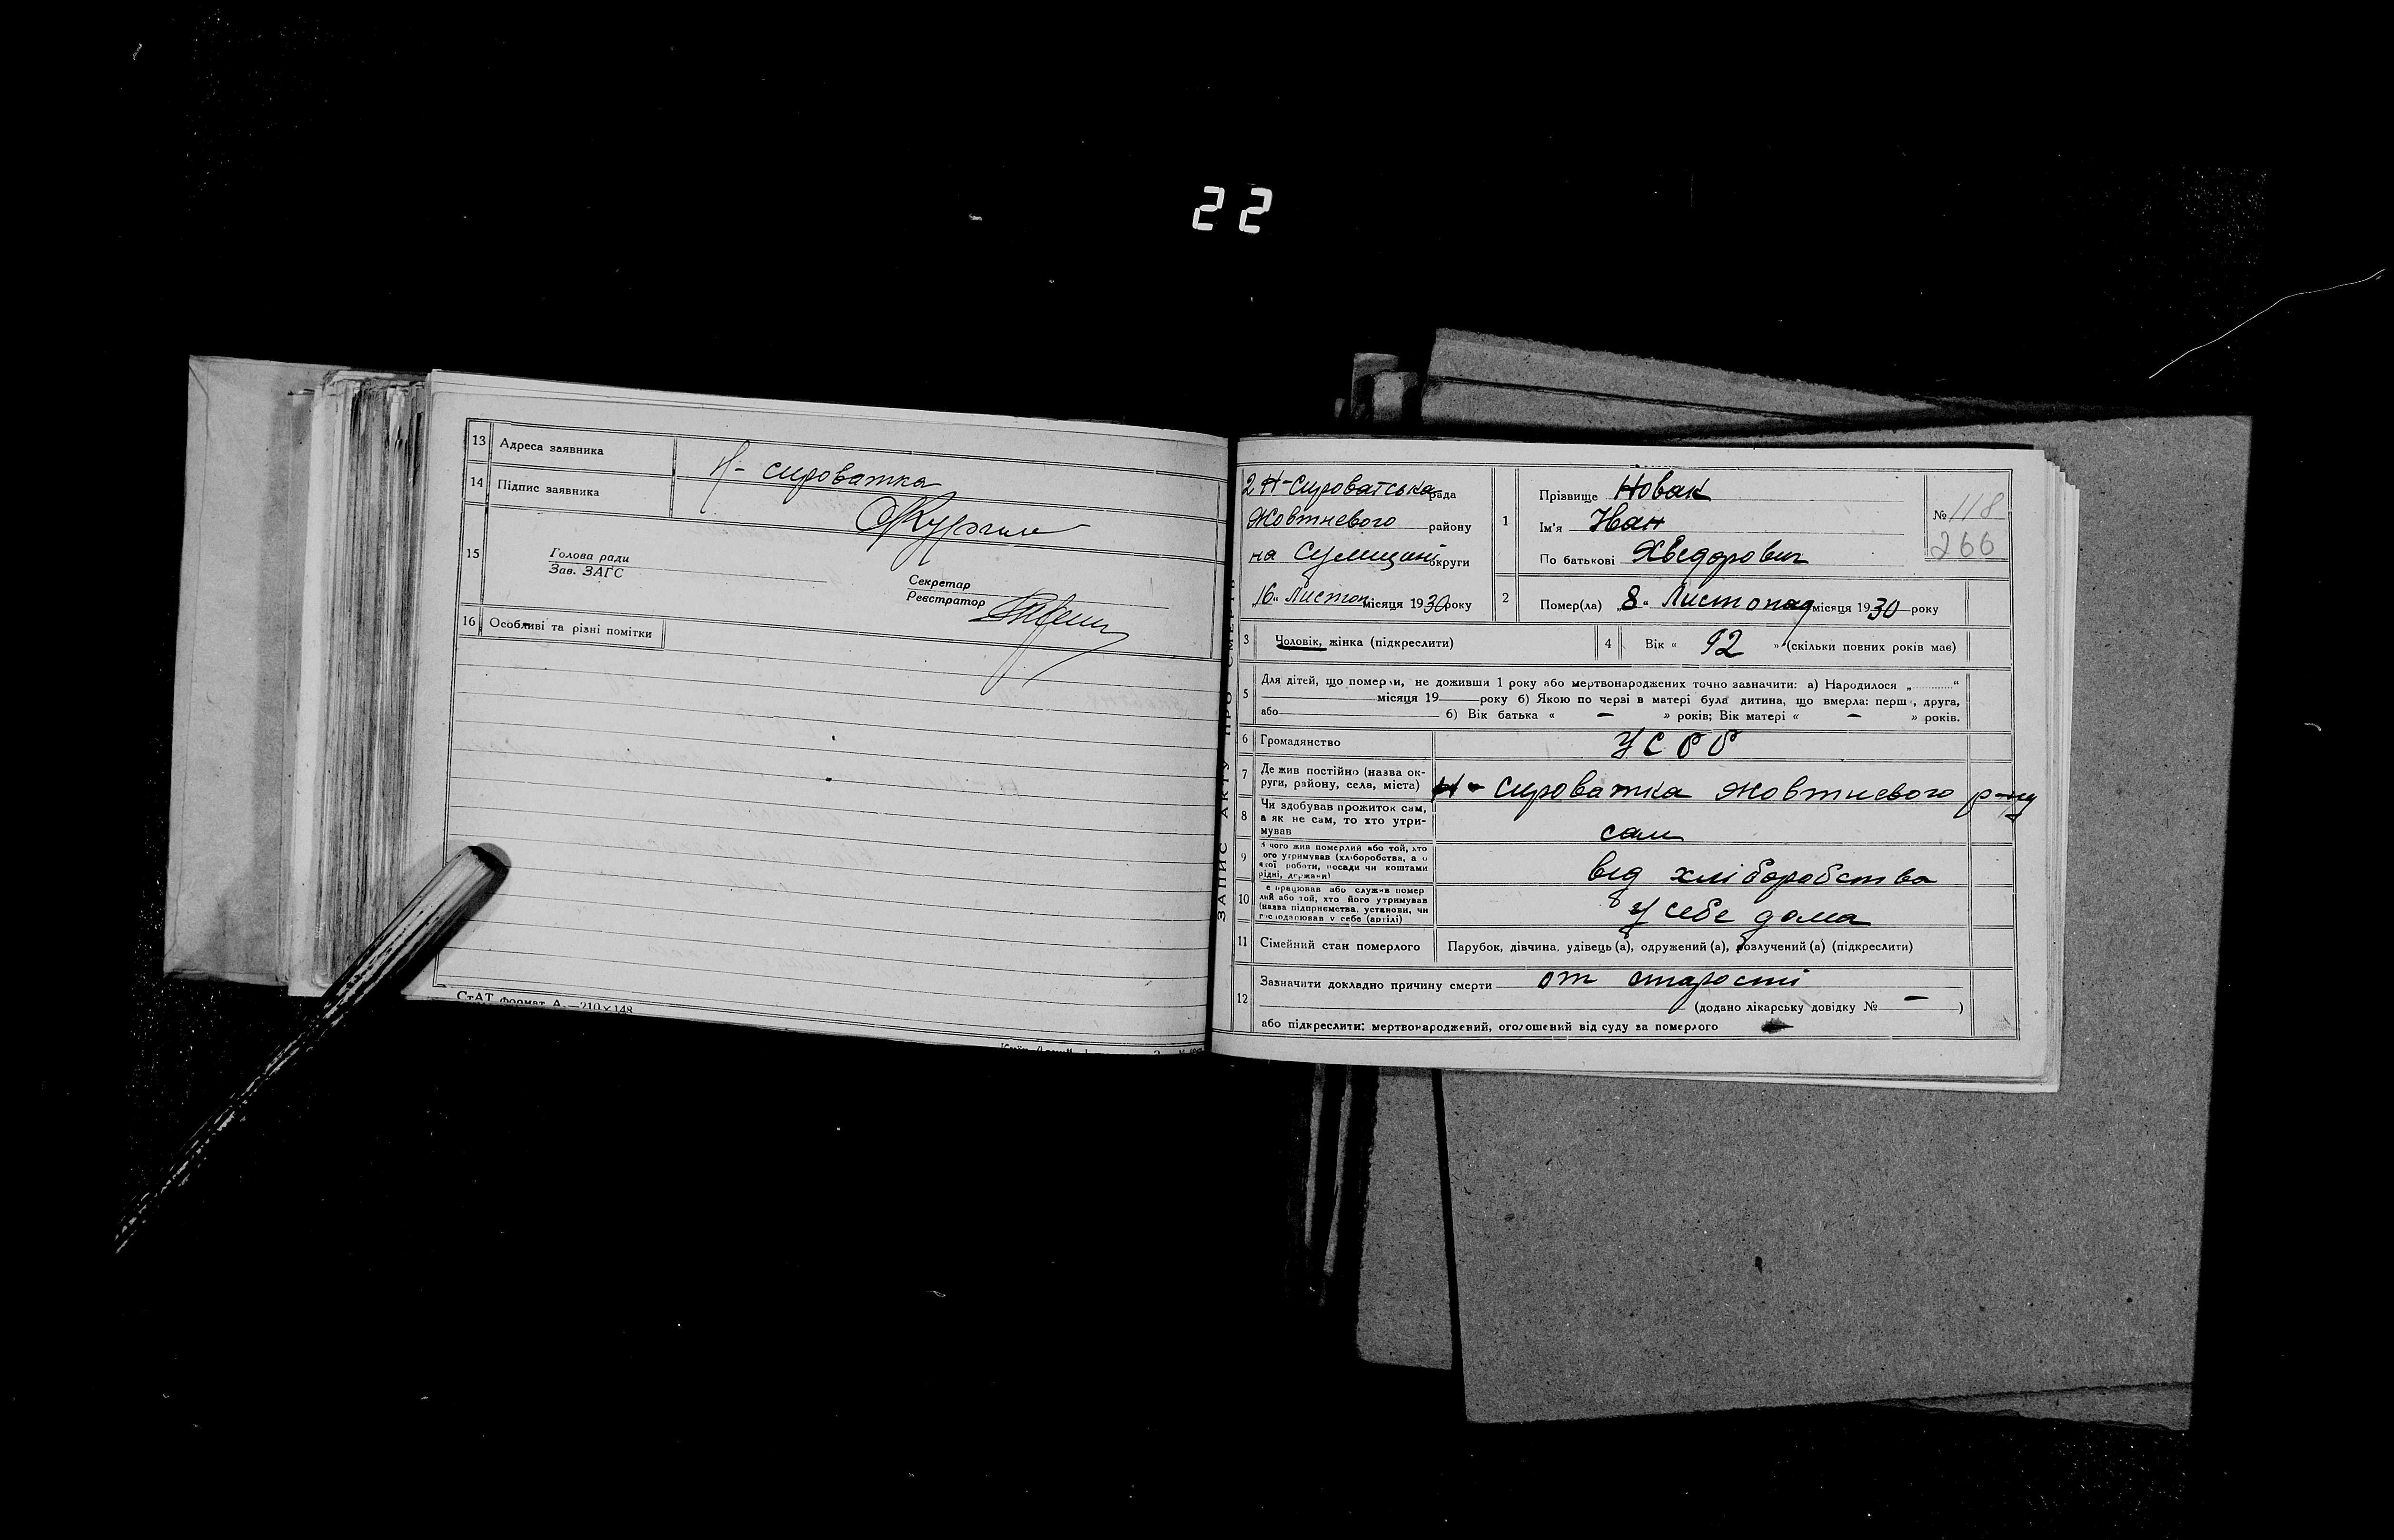 22
13 Адреса заявника Н- сироватка
14 Підпис заявника
15 Голова ради
Зав. ЗАГС
Секретар
Реєстратор
16 Особливі та різні помітки
СтАТ формат А —210×148
ЗАПИС АКТУ ПРО СМЕРТЬ
2 Н-Сироватська рада
Жовтневого району
на Сумщині округи
„16“ Листоп місяця 1930 року
1 Прізвище Новак
Ім'я Иван
По батькові Хведорович
№ 118
266
2 Помер(ла) „8“ Листопад місяця 1930 року
3 Чоловік, жінка (підкреслити)
4 Вік « 92 » (скільки повних років має)
5 Для дітей, що померли, не доживши 1 року або мертвонароджених точно зазначити: а) Народилося „ “
місяця 19 року б) Якою по черзі в матері була дитина, що вмерла: перш , друга,
або б) Вік батька « — » років; Вік матері « — » років.
6 Громадянство УСРР
7 Де жив постійно (назва ок-
руги, району, села, міста) Н - Сироватка Жовтневого р-ну
8 Чи здобував прожиток сам,
а як не сам, то хто утри-
мував сам
9 З чого жив померлий або той, хто
його утримував (хліборобства, а о
якої роботи, посади чи коштами
рідні, держави) від хліборобства
10 е працював або служив помер
лий або той, хто його утримував
(назва підприємства, установи, чи
господарював у себе (артілі) У себе дома
11 Сімейний стан померлого Парубок, дівчина, удівець (а), одружений (а), розлучений (а) (підкреслити)
12 Зазначити докладно причину смерти от старости
(додано лікарську довідку № — )
або підкреслити: мертвонароджений, оголошений від суду за померлого